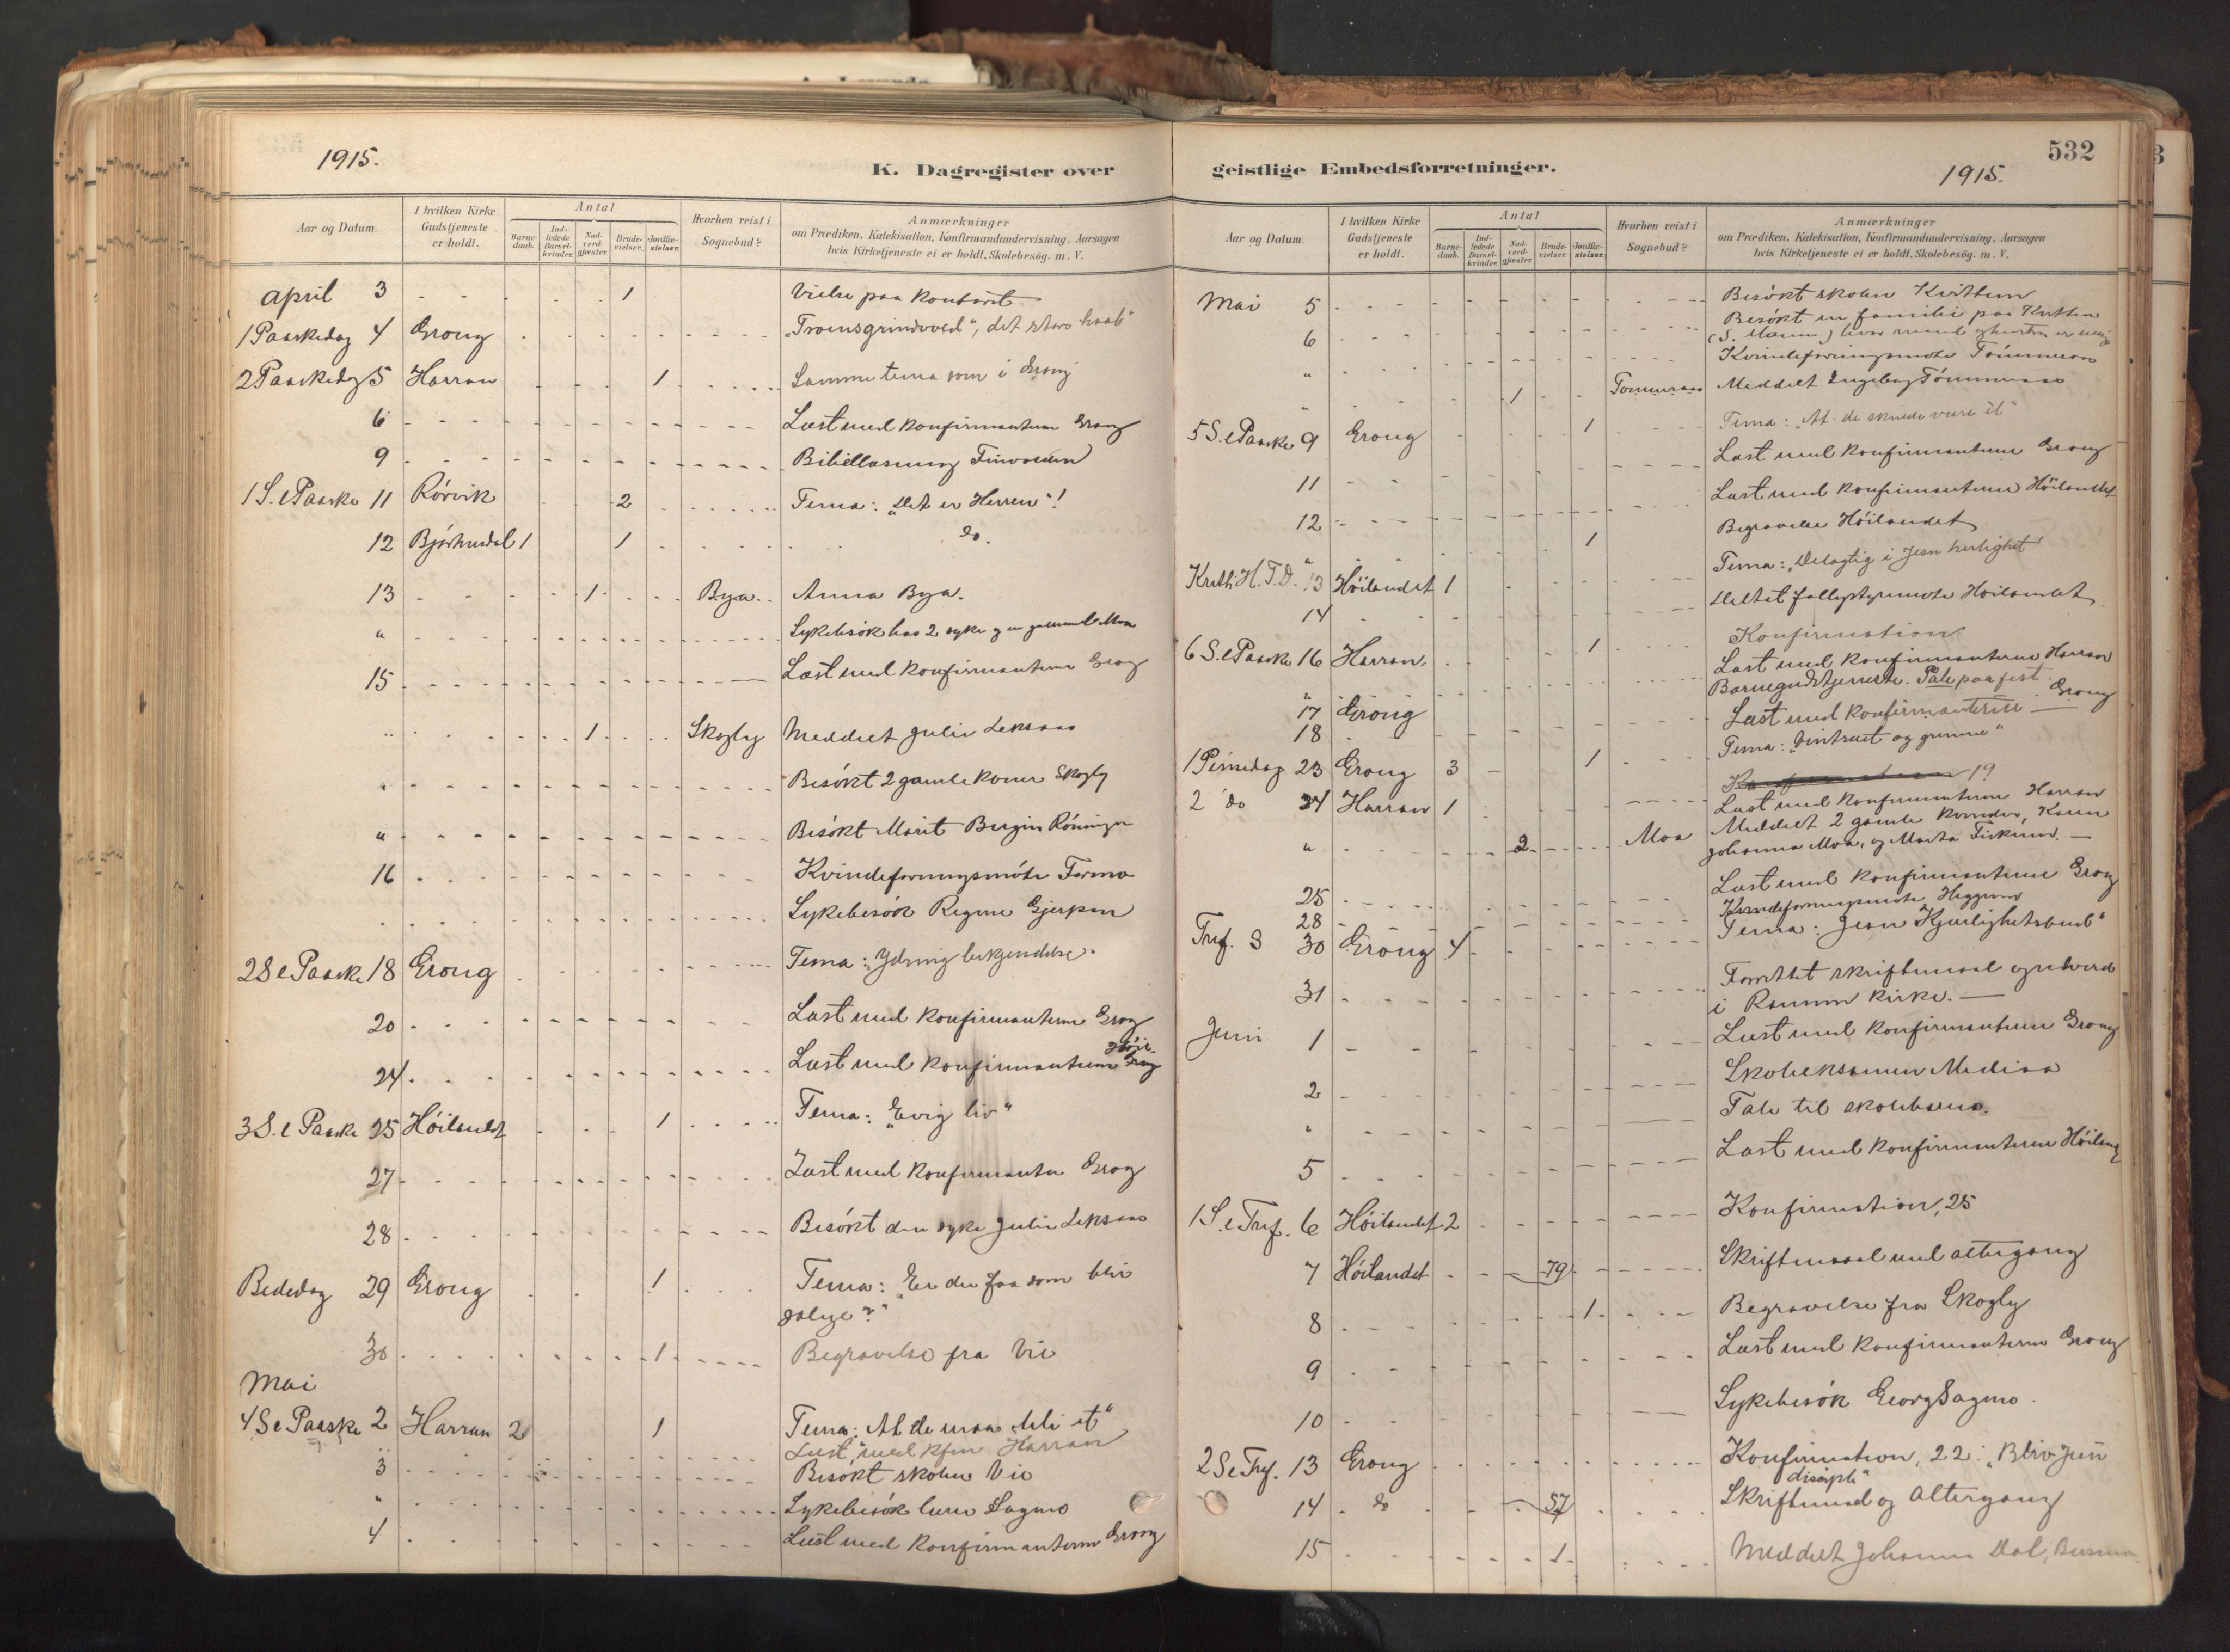 1915.
K. Dagregister over
Aar og Datum.
I hvilken Kirke Gudstjeneste er holdt.
Antal
Barne-daab.
Ind-ledede Barsel-kvinder.
Nad-verd-gjæster.
Brude-vielser.
Jordfæ-stelser.
Hvorhen reist i Sognebud?
Anmærkninger
om Prædiken, Katekisation, Konfirmandundervisning, Aarsagen
hvis Kirketjeneste ei er holdt, Skolebesøg. m. V.
April 3 1 Vielse paa Kontoret
1 Paaskedag 4 Grong det store haab"
2 Paaskedag 5 Harran 1 Samme tema som i Grong
6 Læst med konfirmanterne Grong
9 Bibellæsning
1 S. e Paaske 11 Rörvik 2 Tema: "Det er Herren"!
12 Bjørhusdal 1 1 do.
13 1 Bya Anna Bya.
" Sykebesök hos 2 syke og en gammel Moa
15 Læst med konfirmanterne Grong
" 1 Skogly Meddelt Julie Leksaas
" Besökt 2 gamle koner Skogly
" Besökt Marit Bergin
16 Kvindeforningsmöte Formo
Sykebesök Regine Gjersen
2 S e Paaske 18 Grong Tema: "Ydmyg bekjendelse.
20 Læst med konfirmanterne Grong
24 Læst med konfirmanterne
3 S. e Paaske 25 Höilandet 1 Tema: "Evig liv"
27 Læst med konfirmanter Grong
28 Besökt den syke Julie Leksaas
Bededag 29 Grong 1 Tema: "Er der faa som blir
salige?"
30 1 Begravelse fra Vie
Mai
4 S e Paaske 2 Harran 2 1 Tema: At de maa bli et"
Læst med kfm Harran
3 Besökt skolen Vie
" Sykebesök Sagmo
4 Læst med konfirmanterne Grong
532
geistlige Embedsforretninger.
1915.
Aar og Datum.
I hvilken Kirke Gudstjeneste er holdt.
Antal
Barne-daab.
Ind-ledede Barsel-kvinder.
Nad-verd-gjæster.
Brude-vielser.
Jordfæ-stelser.
Hvorhen reist i Sognebud?
Anmærkninger
om Prædiken, Katekisation, Konfirmandundervisning, Aarsagen
hvis Kirketjeneste ei er holdt, Skolebesøg. m. V.
Mai 5 Besökt skolen Kvittem
6 Besökt en familie paa Kvittem
" Kvindeforningsmöte Tömmeraas
" 1 Tømmeraas Meddelt Ingeborg Tömmeraas
5 S. e Paaske 9 Grong 1 Tema: "At de skulde være et"
11 Læst med konfirmanterne Grong
12 Læst med konfirmanterne Höilandet
" 1 Begravelse Höilandet
Kristi H. F. D. 13 Höilandet 1 Tema: "Delagtig i Jesu herlighet"
14 Höilandet
6 S. e Paaske 16 Harran 1 Konfirmation
" Læst med konfirmanterne Harran
17 Grong Barnegudstjeneste. Tale paa fest
18 Læst med konfirmanterne Grong
1 Pinsedag 23 Grong 3 1 Tema:
2 do 24 Harran 1 19
Læst med konfirmanterne Harran
" 2 Moa Meddelt 2 gamle kvinder, Karen
Johanna Moa, og Marta
25 Læst med konfirmanterne Grong
28 Kvindeforningsmöte
Tref. S 30 Grong 4 Tema: Jesu Kjærlighetsbud"
31 Forrettet skriftemaal og
i Ranem kirke.
Juni 1 Læst med konfirmanterne Grong
2 Skoleeksamen Mediaa
" Tale til skolebarna.
5 Læst med konfirmanterne
1 S. e Tref. 6 Höilandet 2 Konfirmation, 25
7 Höilandet 79 Skriftemaal med altergang
8 1 Begravelse fra Skogly
9 Læst med konfirmanterne Grong
10 Sykebesök Georg Sagmo.
2 S e Tref. 13 Grong Konfirmation, 22: "Bliv Jesu
discipli"
14 do 57 Skriftemaal og Altergang
15 1 Meddelt Johanna